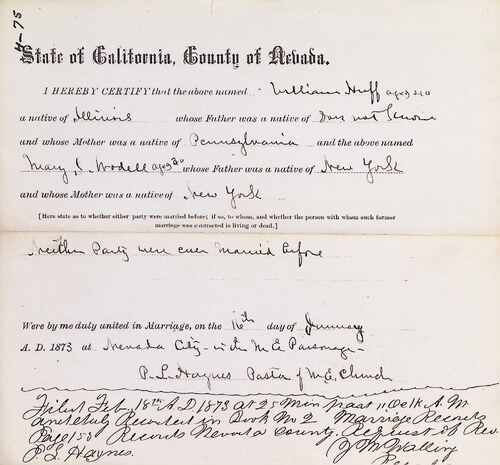 4-75
State of California, County of Nevada.
I HEREBY CERTIFY that the above named William Huff aged 40
a native of Illinois whose Father was a native of Does not Know
and whose Mother was a native of Pennsylvania and the above named
Mary J. Wodell aged 30 whose Father was a native of New York
and whose Mother was a native of New York
[Here state as to whether either party were married before; if so, to whom, and whether the person with whom such former
marriage was contracted is living or dead.]
Neither Party were ever Married before
Were by me duly united in Marriage, on the 16th day of January
A. D. 1873 at Nevada City - in the M. E. Parsonage -
P. L. Haynes Pastor of M. E. Church
Filed Feb. 18th A.D. 1873 at 25 Min past 11 O clk A. M.
and duly Recorded in Book No 2 Marriage Records
Page 153 Records Nevada County. Request of Rev.
P. L. Haynes. J M Walling